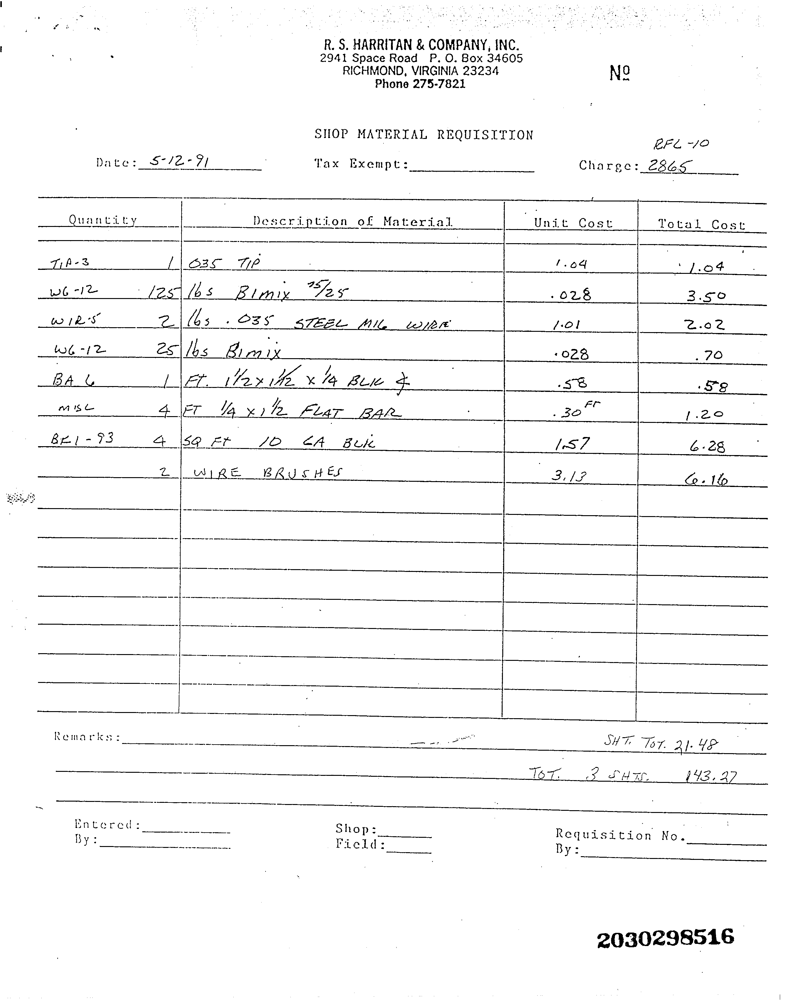 R. S. HARRITAN & COMPANY, INC.
2941 Space Road P. O. Box 34605
RICHMOND, VIRGINIA 23234
Phone 275-7821
Nº
SHOP MATERIAL REQUISITION
RFL-10
Date: 5-12-91 Tax Exempt: Charge: 2865
Quantity Description of Material Unit Cost Total Cost
TIP-3 1 035 TIP 1.04 1.04
WG-12 125 lbs BIMIX 75/25 .028 3.50
WIR-5 2 lbs .035 STEEL MIG WIRE 1.01 2.02
WG-12 25 lbs BIMIX .028 .70
BA 6 1 FT. 1 1/2 x 1 1/2 x 1/4 BLK .58 .58
MISC 4 FT 1/4 x 1 1/2 FLAT BAR .30 FT 1.20
4 SQ FT 10 GA BLK 1.57 6.28
2 WIRE BRUSHES 3.13 6.16
Remarks: SHT. TOT. 21.48
TOT. 3 SHTS. 143.27
Entered: Shop: Requisition No.
By: Field: By:
2030298516